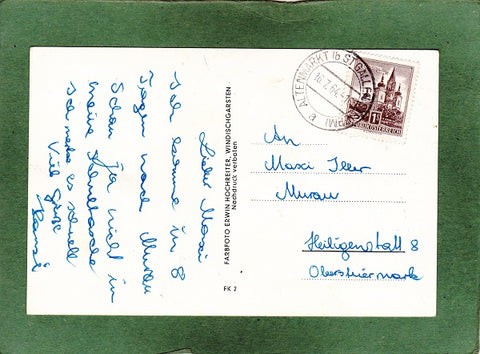 Lieber Maxi
Ich komme in 8
Tagen nach Murau
Schau ja nicht in
meine Handtasche
ich merke es schnell
Viel Grüße
Hansi
FARBFOTO ERWIN HOCHREITER, WINDISCHGARSTEN
Nachdruck verboten
FK 2
ALTENMARKT b ST GALLEN
16.7.64
REPUBLIK ÖSTERREICH
An
Maxi
Murau
Heiligenstatt 8
Obersteiermark